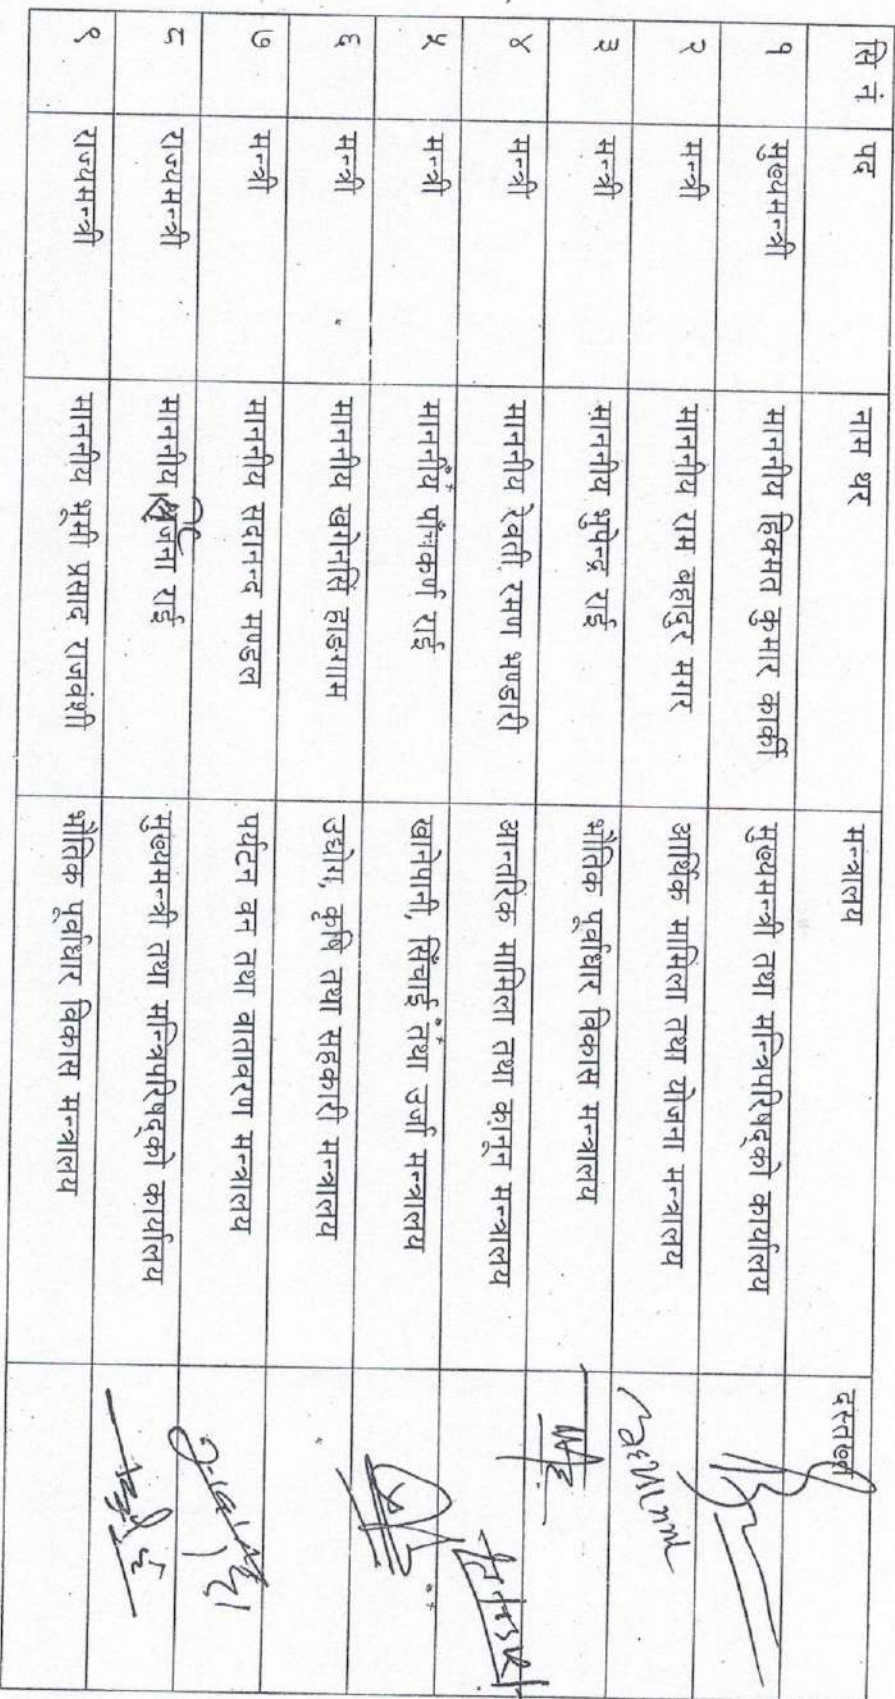 सि नं पद नाम थर मन्त्रालय दस्तखत
१ मुख्यमन्त्री माननीय हिक्मत कुमार कार्की मुख्यमन्त्री तथा मन्त्रिपरिषद्को कार्यालय
२ मन्त्री माननीय राम बहादुर मगर आर्थिक मामिला तथा योजना मन्त्रालय
३ मन्त्री माननीय भुपेन्द्र राई भौतिक पूर्वाधार विकास मन्त्रालय
४ मन्त्री माननीय रेवती रमण भण्डारी आन्तरिक मामिला तथा कानून मन्त्रालय
५ मन्त्री माननीय पाँचकर्ण राई खानेपानी, सिंचाई तथा उर्जा मन्त्रालय
६ मन्त्री माननीय खगेनसिं हाङगाम उद्योग, कृषि तथा सहकारी मन्त्रालय
७ मन्त्री माननीय सदानन्द मण्डल पर्यटन वन तथा वातावरण मन्त्रालय
८ राज्यमन्त्री माननीय राई मुख्यमन्त्री तथा मन्त्रिपरिषद्को कार्यालय
९ राज्यमन्त्री माननीय भूमी प्रसाद राजवंशी भौतिक पूर्वाधार विकास मन्त्रालय